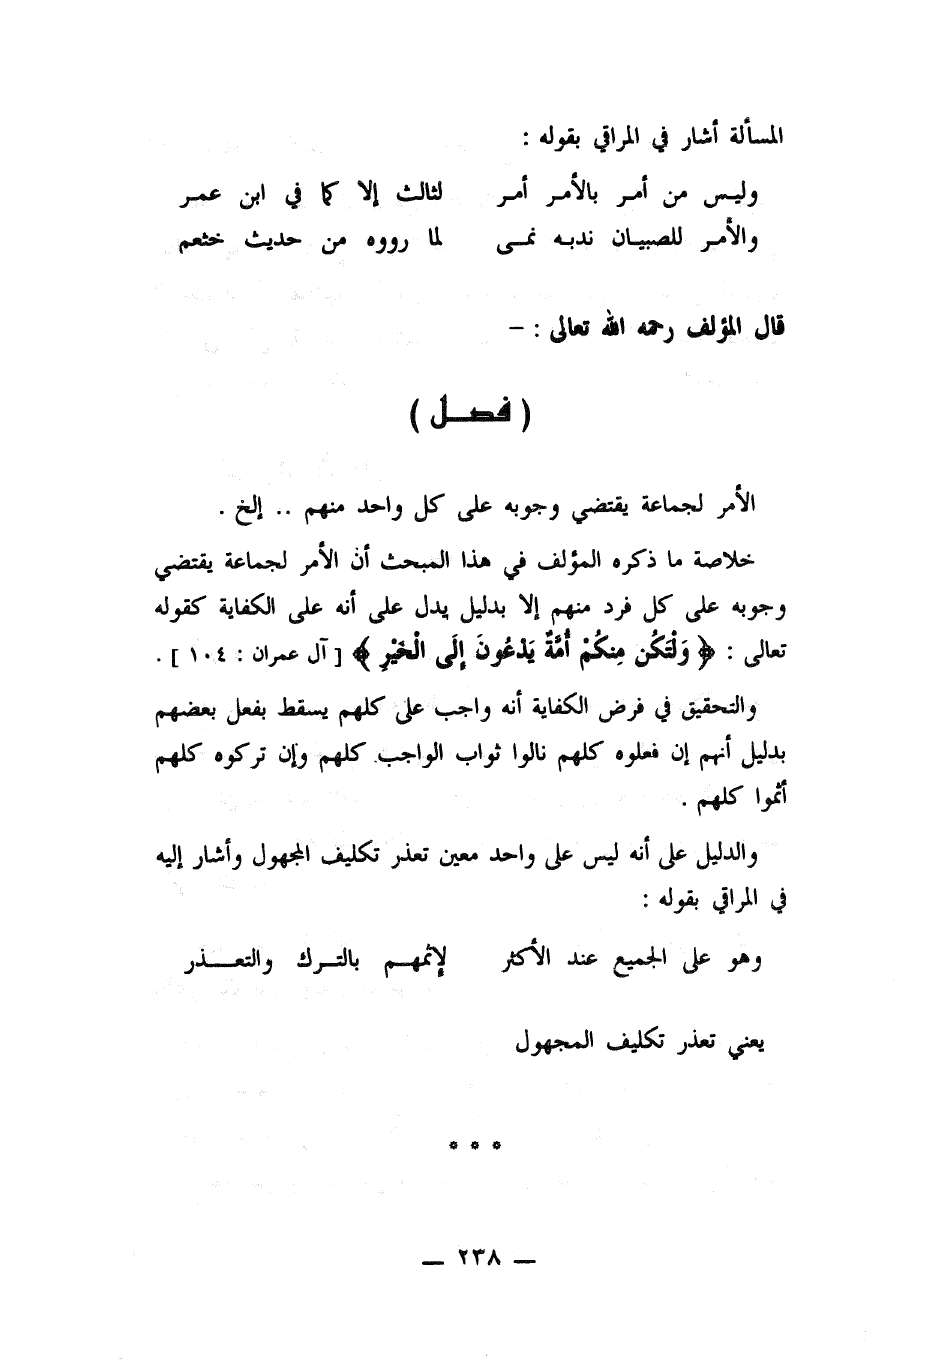 المسألة أشار في المراقي بقوله :
وليس من أمر بالأمر أمر لثالث إلا كما في ابن عمر
والأمر للصبيان ندبه نمى لما رووه من حديث خثعم
قال المؤلف رحمه الله تعالى : –
( فصل )
الأمر لجماعة يقتضي وجوبه على كل واحد منهم .. إلخ .
خلاصة ما ذكره المؤلف في هذا المبحث أن الأمر لجماعة يقتضي
وجوبه على كل فرد منهم إلا بدليل يدل على أنه على الكفاية كقوله
تعالى : ﴿ وَلْتَكُن مِنكُمْ أُمَّةٌ يَدْعُونَ إِلَى الْخَيْرِ ﴾ [ آل عمران : ١٠٤ ] .
والتحقيق في فرض الكفاية أنه واجب على كلهم يسقط بفعل بعضهم
بدليل أنهم إن فعلوه كلهم نالوا ثواب الواجب كلهم وإن تركوه كلهم
أثموا كلهم .
والدليل على أنه ليس على واحد معين تعذر تكليف المجهول وأشار إليه
في المراقي بقوله :
وهو على الجميع عند الأكثر لإثمهم بالترك والتعذر
يعني تعذر تكليف المجهول
* * *
— ٢٣٨ —